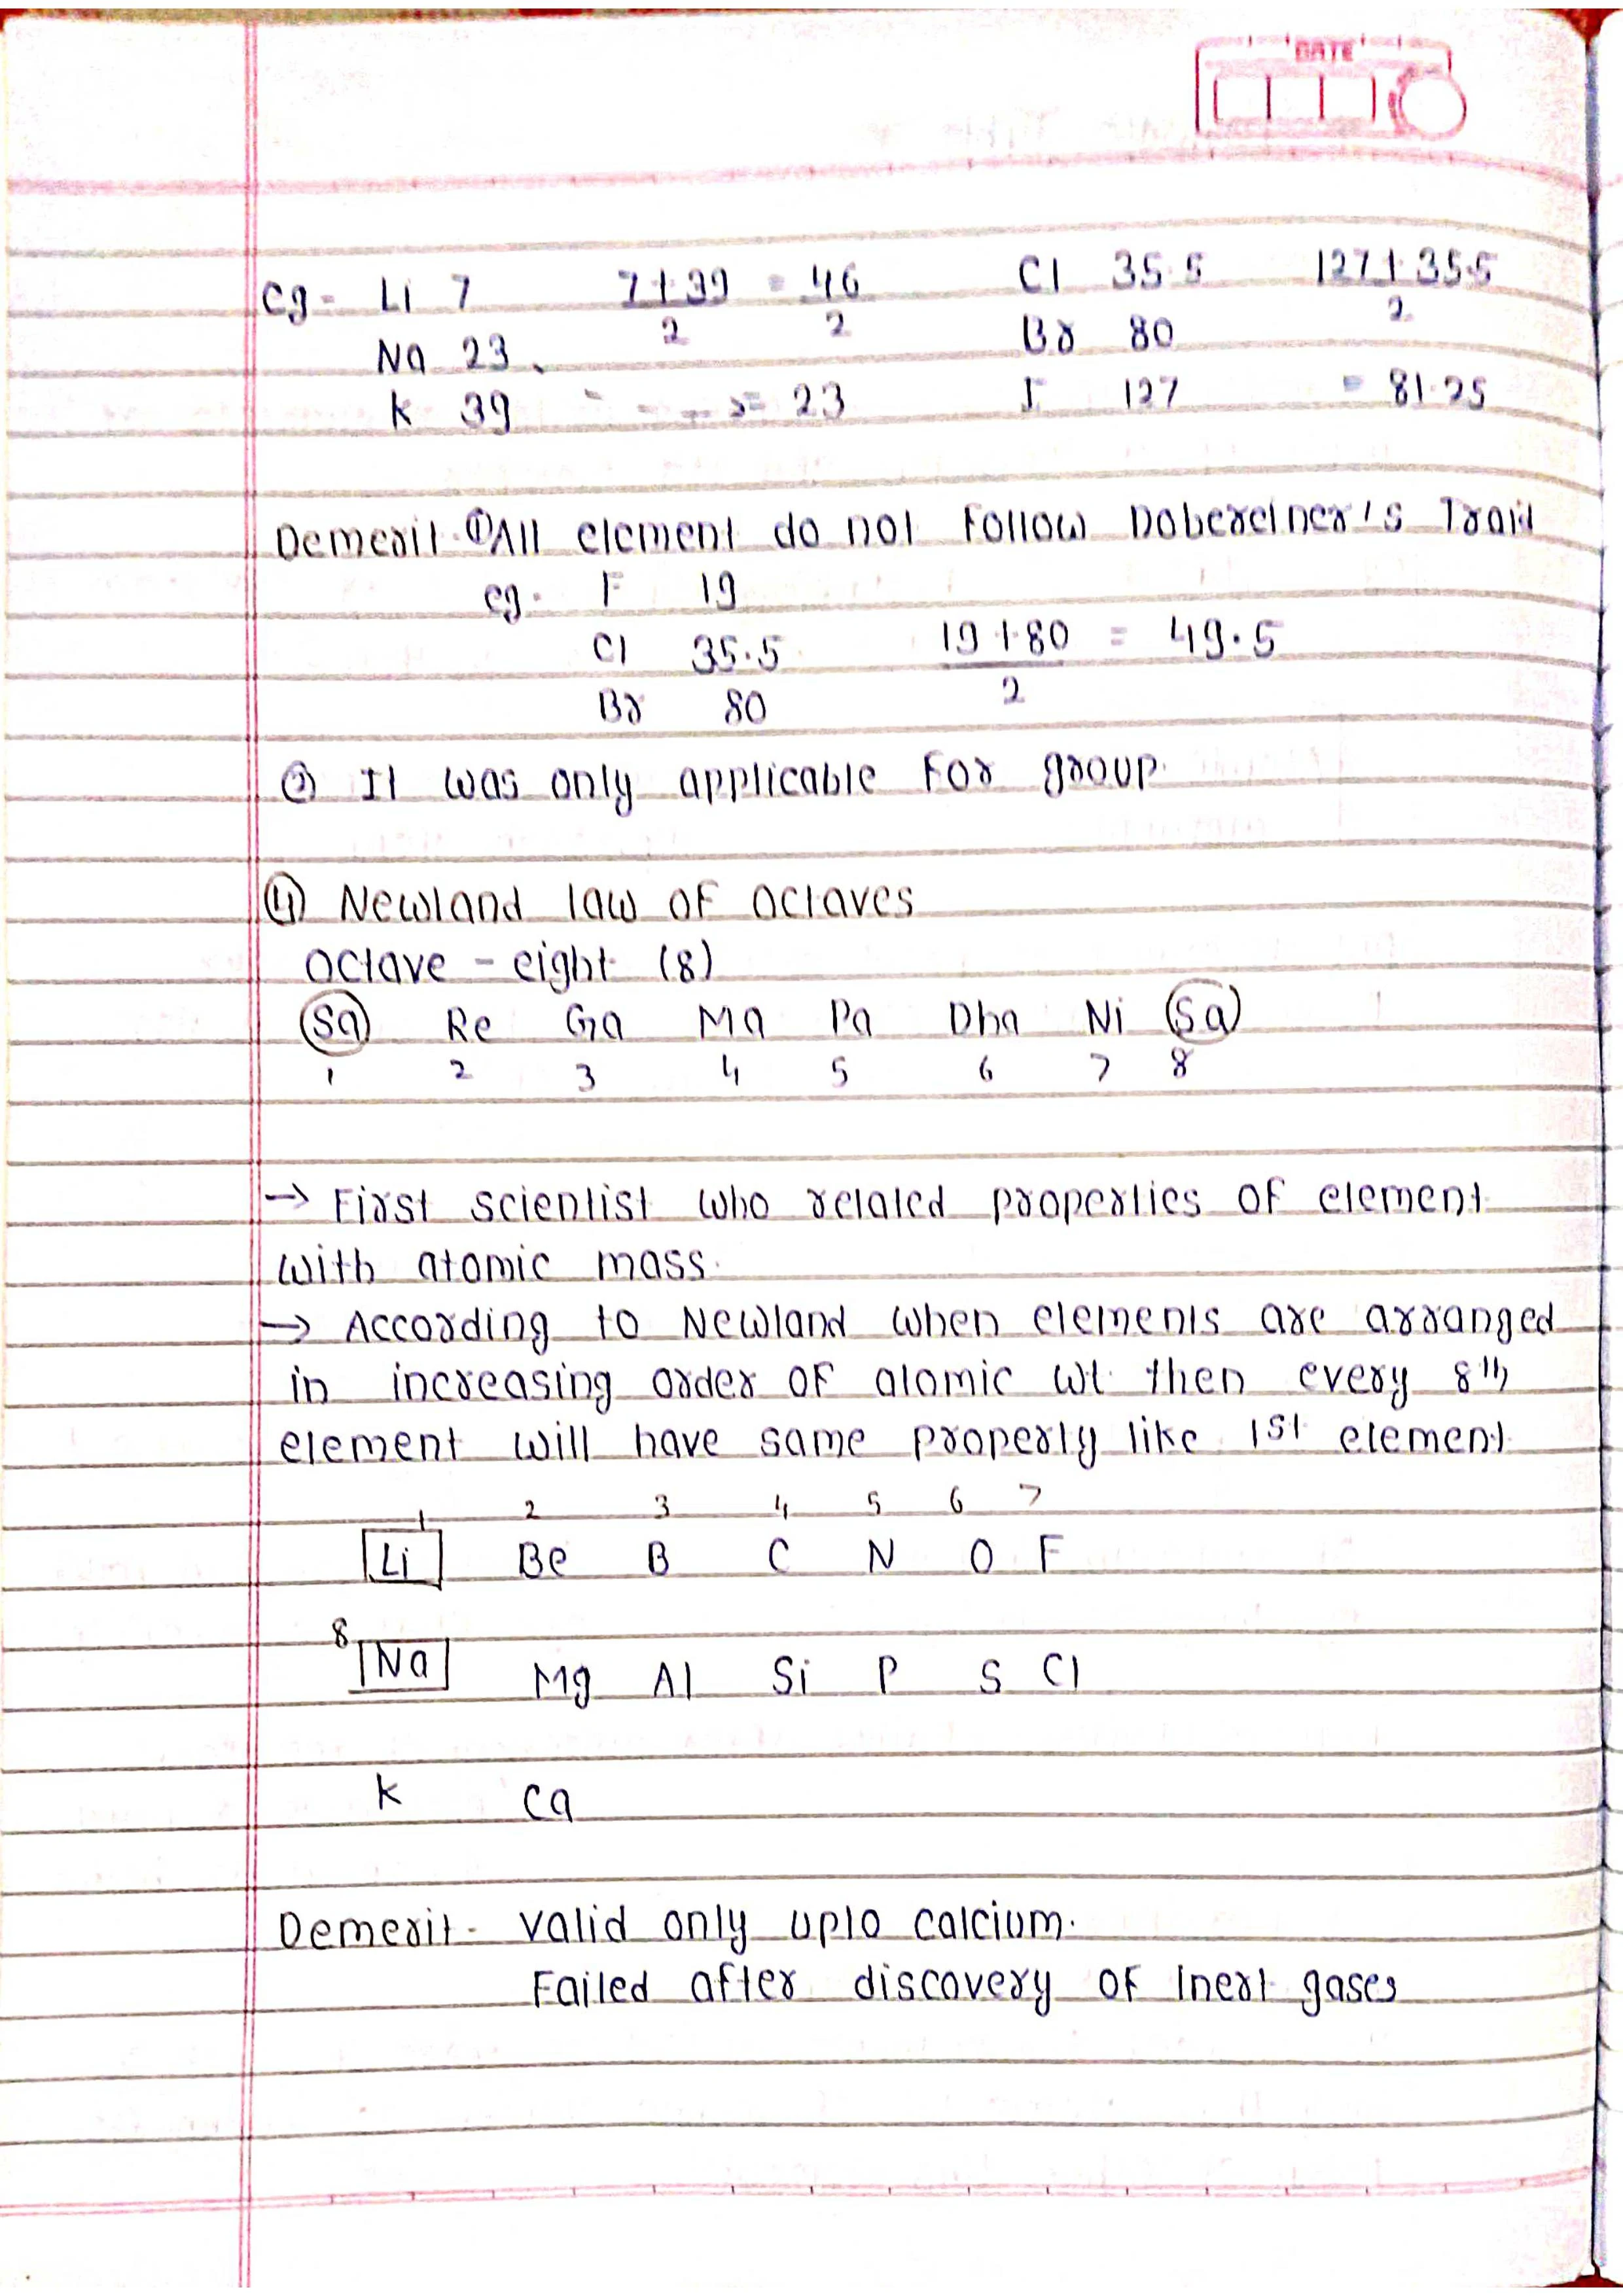 DATE
eg- Li 7 7+39/2 = 46/2 Cl 35.5 127+35.5/2
Na 23 Br 80
K 39 => 23 I 127 = 81.25
Demerit. ① All element do not follow Dobereiner's Traid
eg. F 19
Cl 35.5 19+80/2 = 49.5
Br 80
② It was only applicable for group.
④ Newland law of octaves
octave - eight (8)
Sa Re Ga Ma Pa Dha Ni Sa
1 2 3 4 5 6 7 8
→ First scientist who related properties of element
with atomic mass.
→ According to Newland when elements are arranged
in increasing order of atomic wt. then every 8th
element will have same property like 1st element.
1 2 3 4 5 6 7
Li Be B C N O F
8
Na Mg Al Si P S Cl
K Ca
Demerit - valid only upto calcium.
Failed after discovery of Inert gases